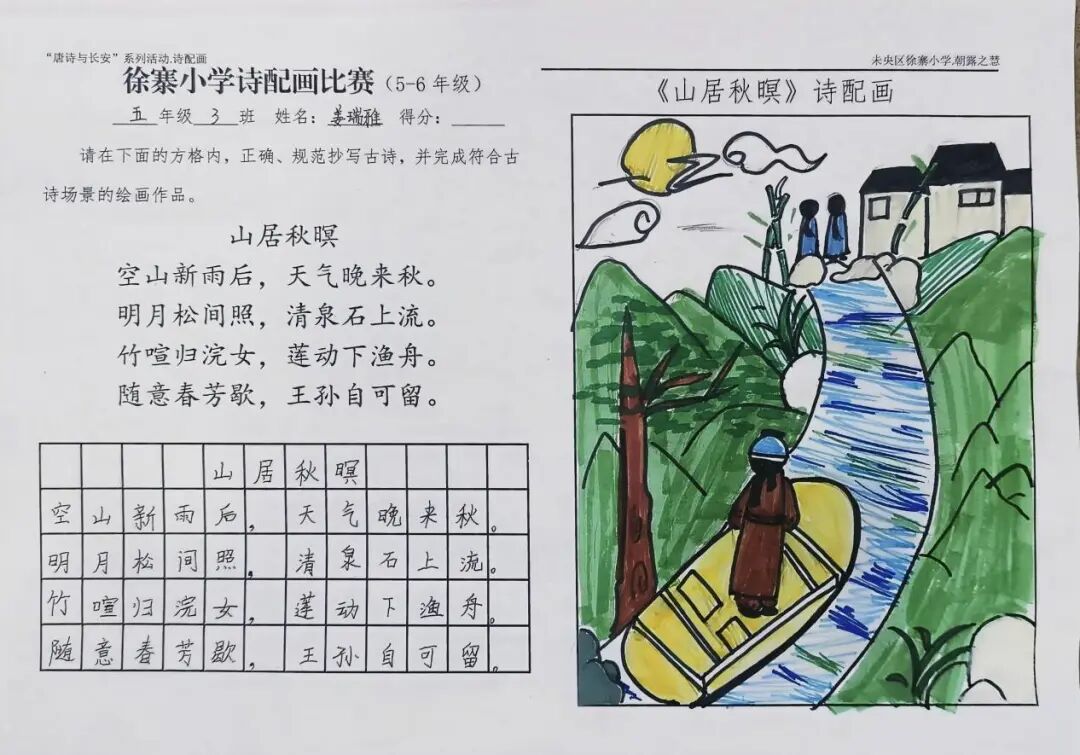 “唐诗与长安”系列活动.诗配画
徐寨小学诗配画比赛（5-6年级）
五年级 3 班 姓名：姜瑞雅 得分：
请在下面的方格内，正确、规范抄写古诗，并完成符合古
诗场景的绘画作品。
山居秋暝
空山新雨后，天气晚来秋。
明月松间照，清泉石上流。
竹喧归浣女，莲动下渔舟。
随意春芳歇，王孙自可留。
山居秋暝
空山新雨后，天气晚来秋。
明月松间照，清泉石上流。
竹喧归浣女，莲动下渔舟。
随意春芳歇，王孙自可留。
未央区徐寨小学.朝露之慧
《山居秋暝》诗配画